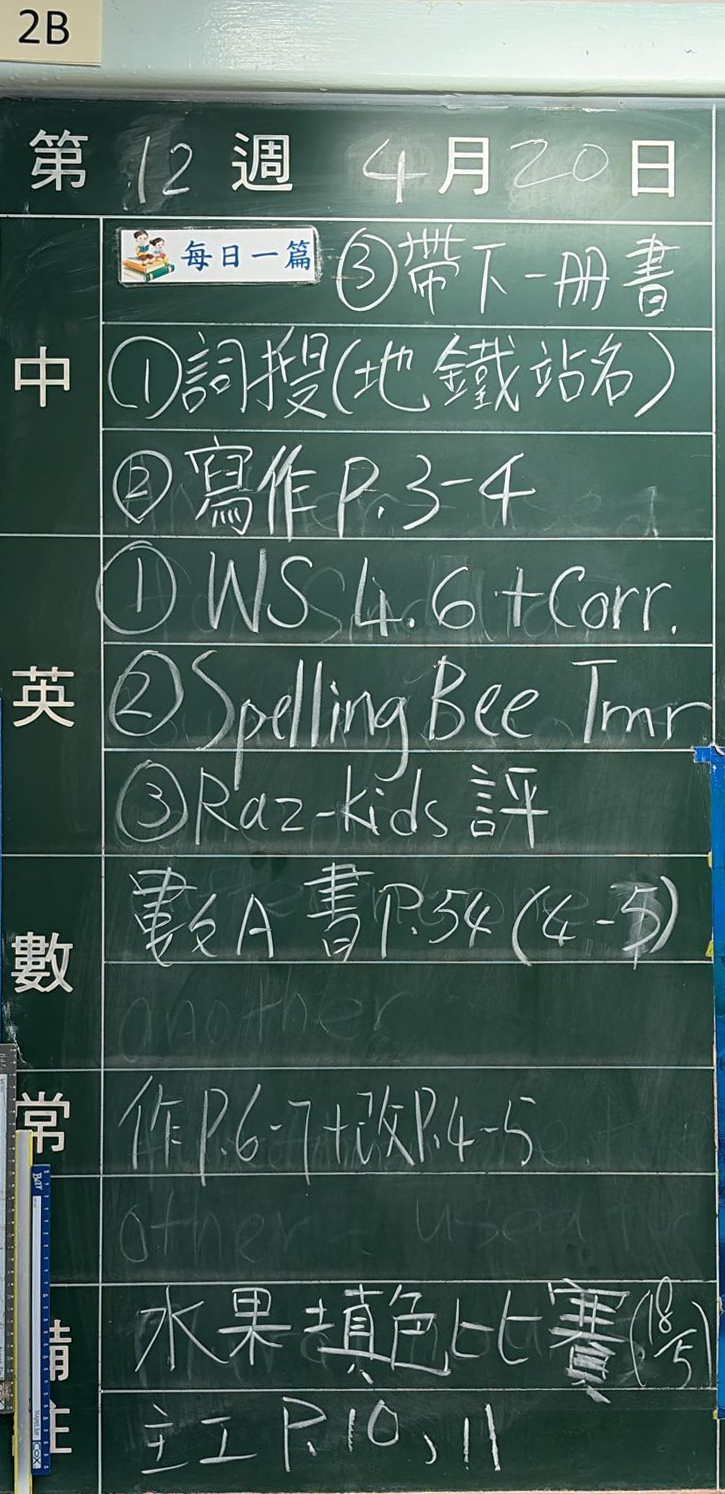 2B
第 12 週 4月20日
每日一篇 ③帶下一册書
中
①詞搜(地鐵站名)
② 寫作 P.3-4
① WS 4.6 +Corr.
英
② Spelling Bee Tmr
③ Raz-kids 評
數A 書 P.54 (4-5)
數
another
常
作 P.6-7+改P.4-5
other - used
水果填色比賽(18/5)
備註
主工 P.10、11